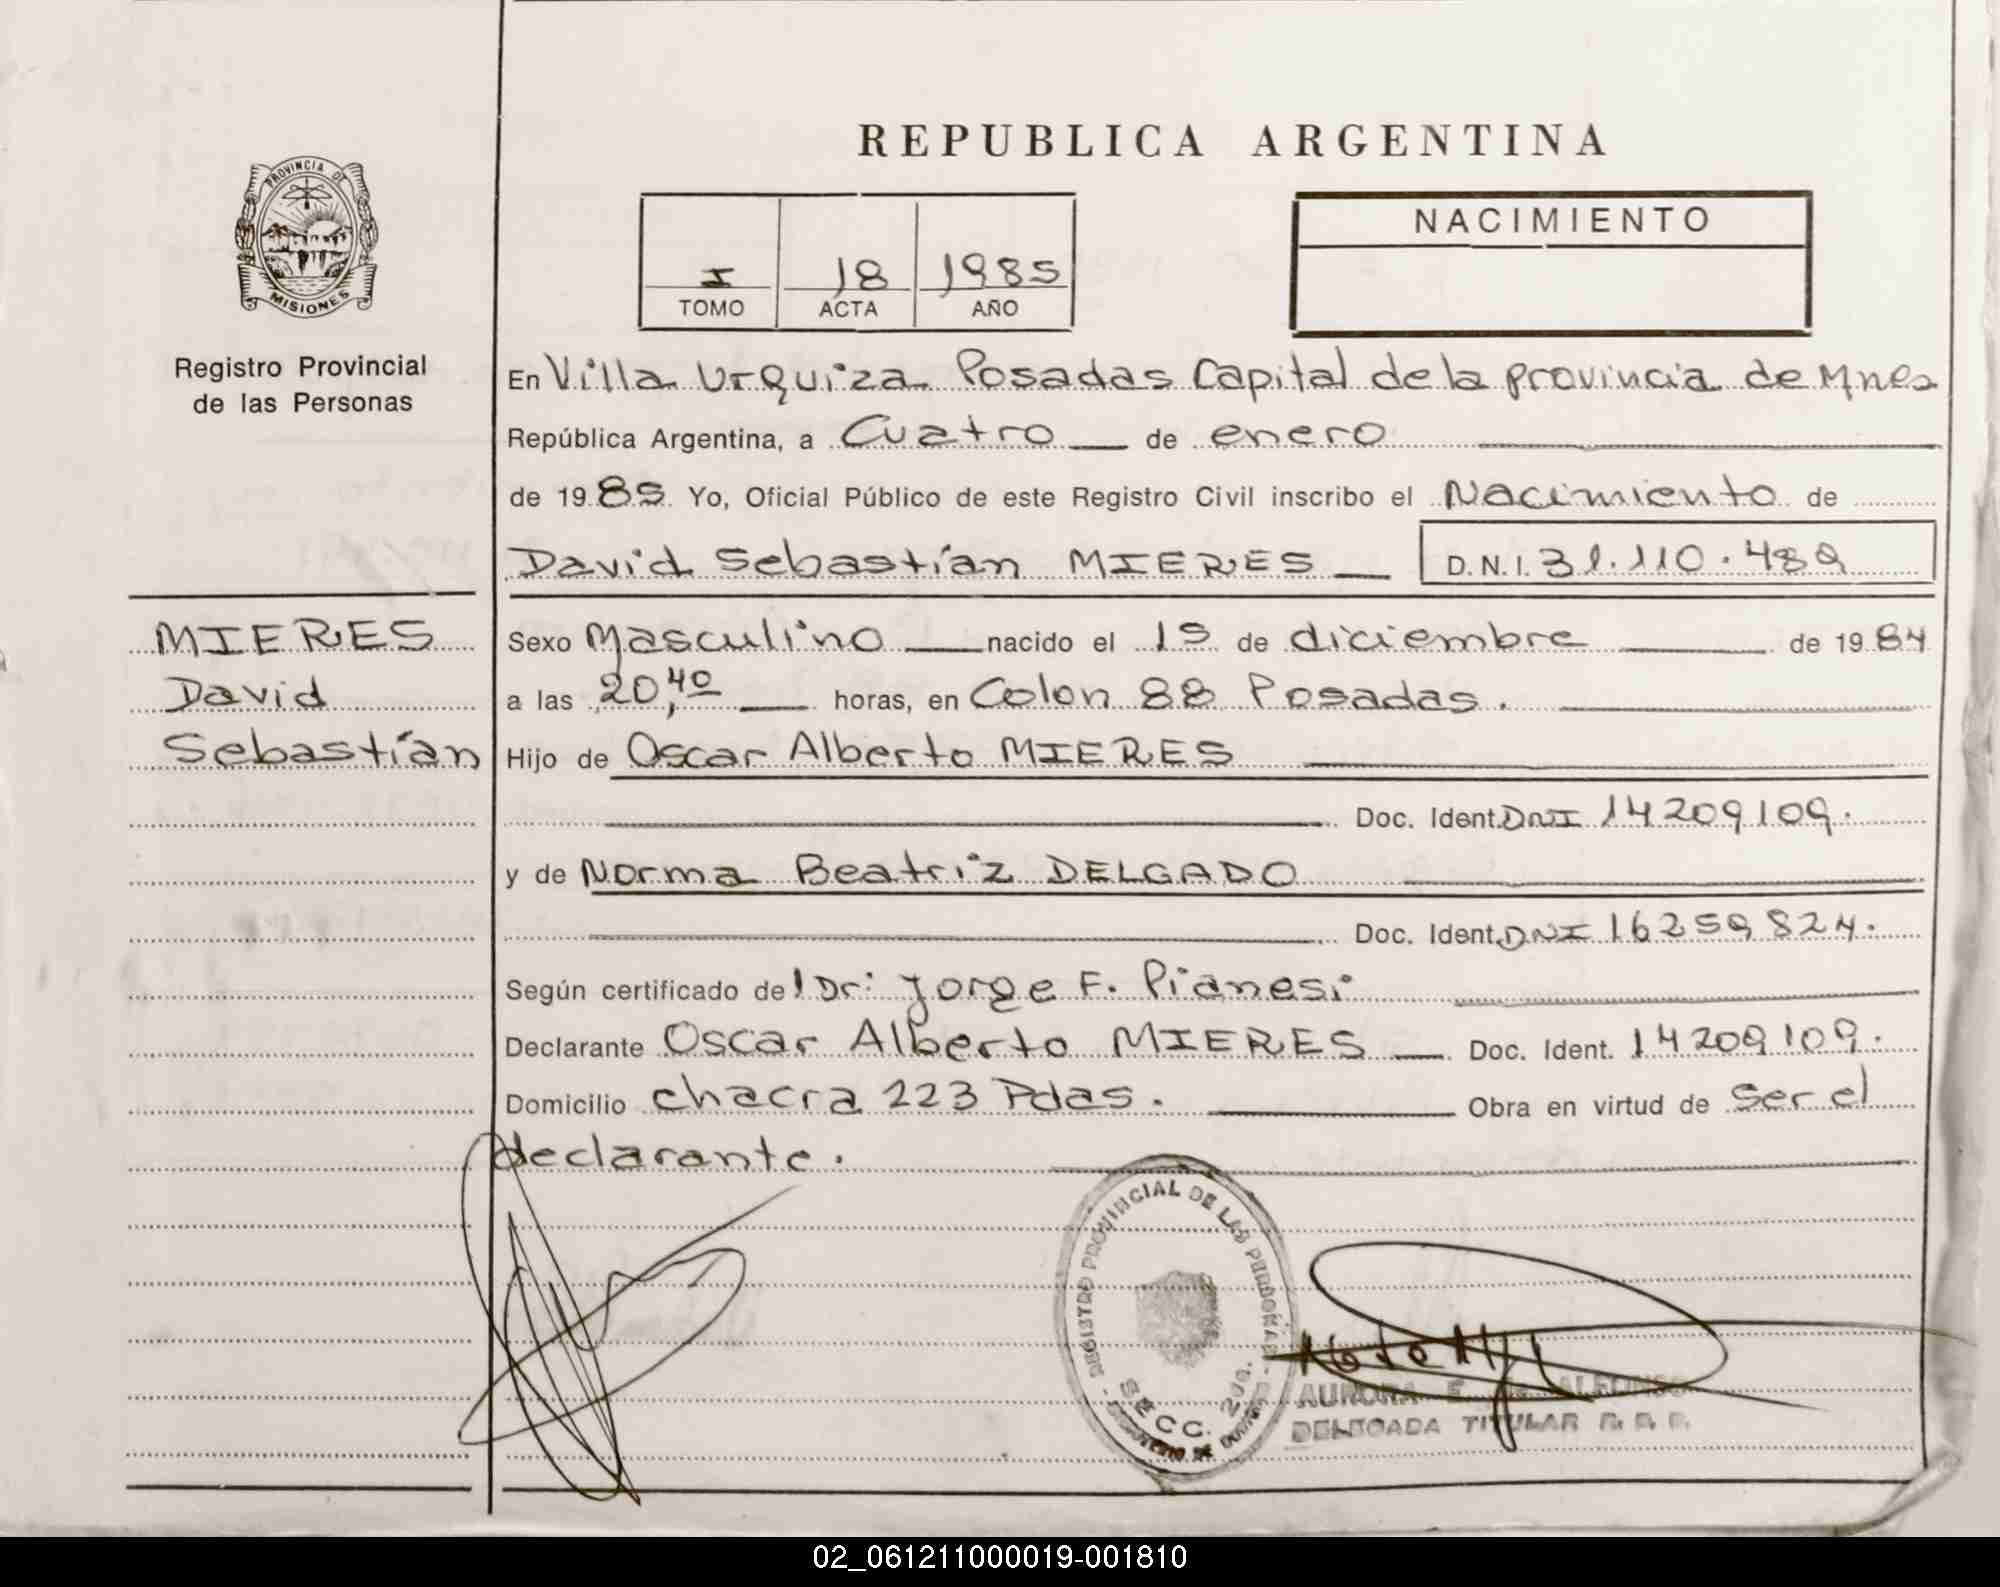 REPUBLICA ARGENTINA
PROVINCIA DE
MISIONES
Registro Provincial
de las Personas
I 18 1985
TOMO ACTA AÑO
NACIMIENTO
En Villa Urquiza Posadas Capital de la provincia de Mnes
República Argentina, a Cuatro de enero
de 1985 Yo, Oficial Público de este Registro Civil inscribo el Nacimiento de
David Sebastián MIERES D.N.I. 31.110.489
MIERES
David
Sebastían
Sexo Masculino nacido el 15 de diciembre de 1984
a las 20,40 horas, en Colon 88 Posadas.
Hijo de Oscar Alberto MIERES
Doc. Ident. DNI 14209109.
y de Norma Beatriz DELGADO
Doc. Ident. DNI 16259824.
Según certificado del Dr: Jorge F. Pianesi
Declarante Oscar Alberto MIERES Doc. Ident. 14209109.
Domicilio chacra 223 Pdas. Obra en virtud de ser el
declarante.
REGISTRO PROVINCIAL DE LAS PERSONAS
SECC. 2da.
AURORA E. ALFONSO
DELEGADA TITULAR R. P. P.
02_061211000019-001810